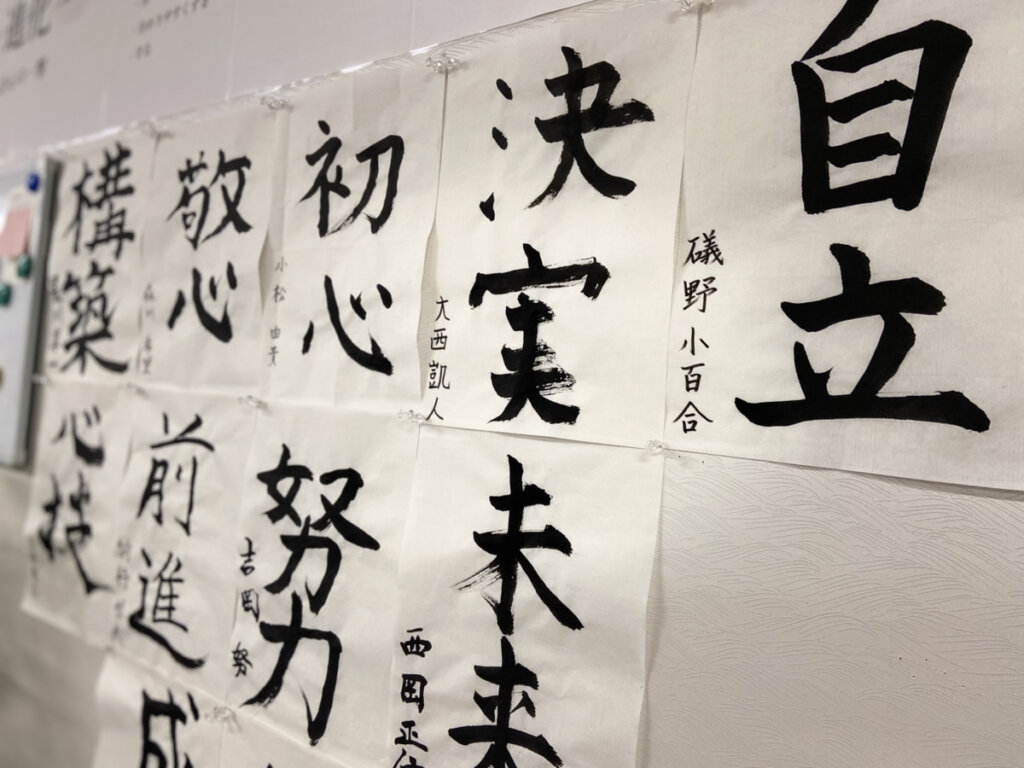 進化
自立
礒野小百合
決実
大西凱人
初心
小松由貴
敬心
構築
未来
西岡正
努力
吉岡努
前進
心技
成